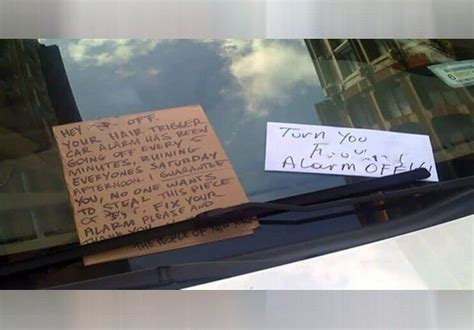 HEY OFF.
YOUR HAIR TRIGGER
CAR ALARM HAS BEEN
GOING OFF EVERY 5
MINUTES, RUINING
EVERYONES SATURDAY
AFTERNOON. I GUARANTEE
YOU, NO ONE WANTS
TO STEAL THIS PIECE
OF FIX YOUR
ALARM PLEASE AND
THANK YOU
THE PEOPLE OF NEW
Turn You
Alarm OFF!